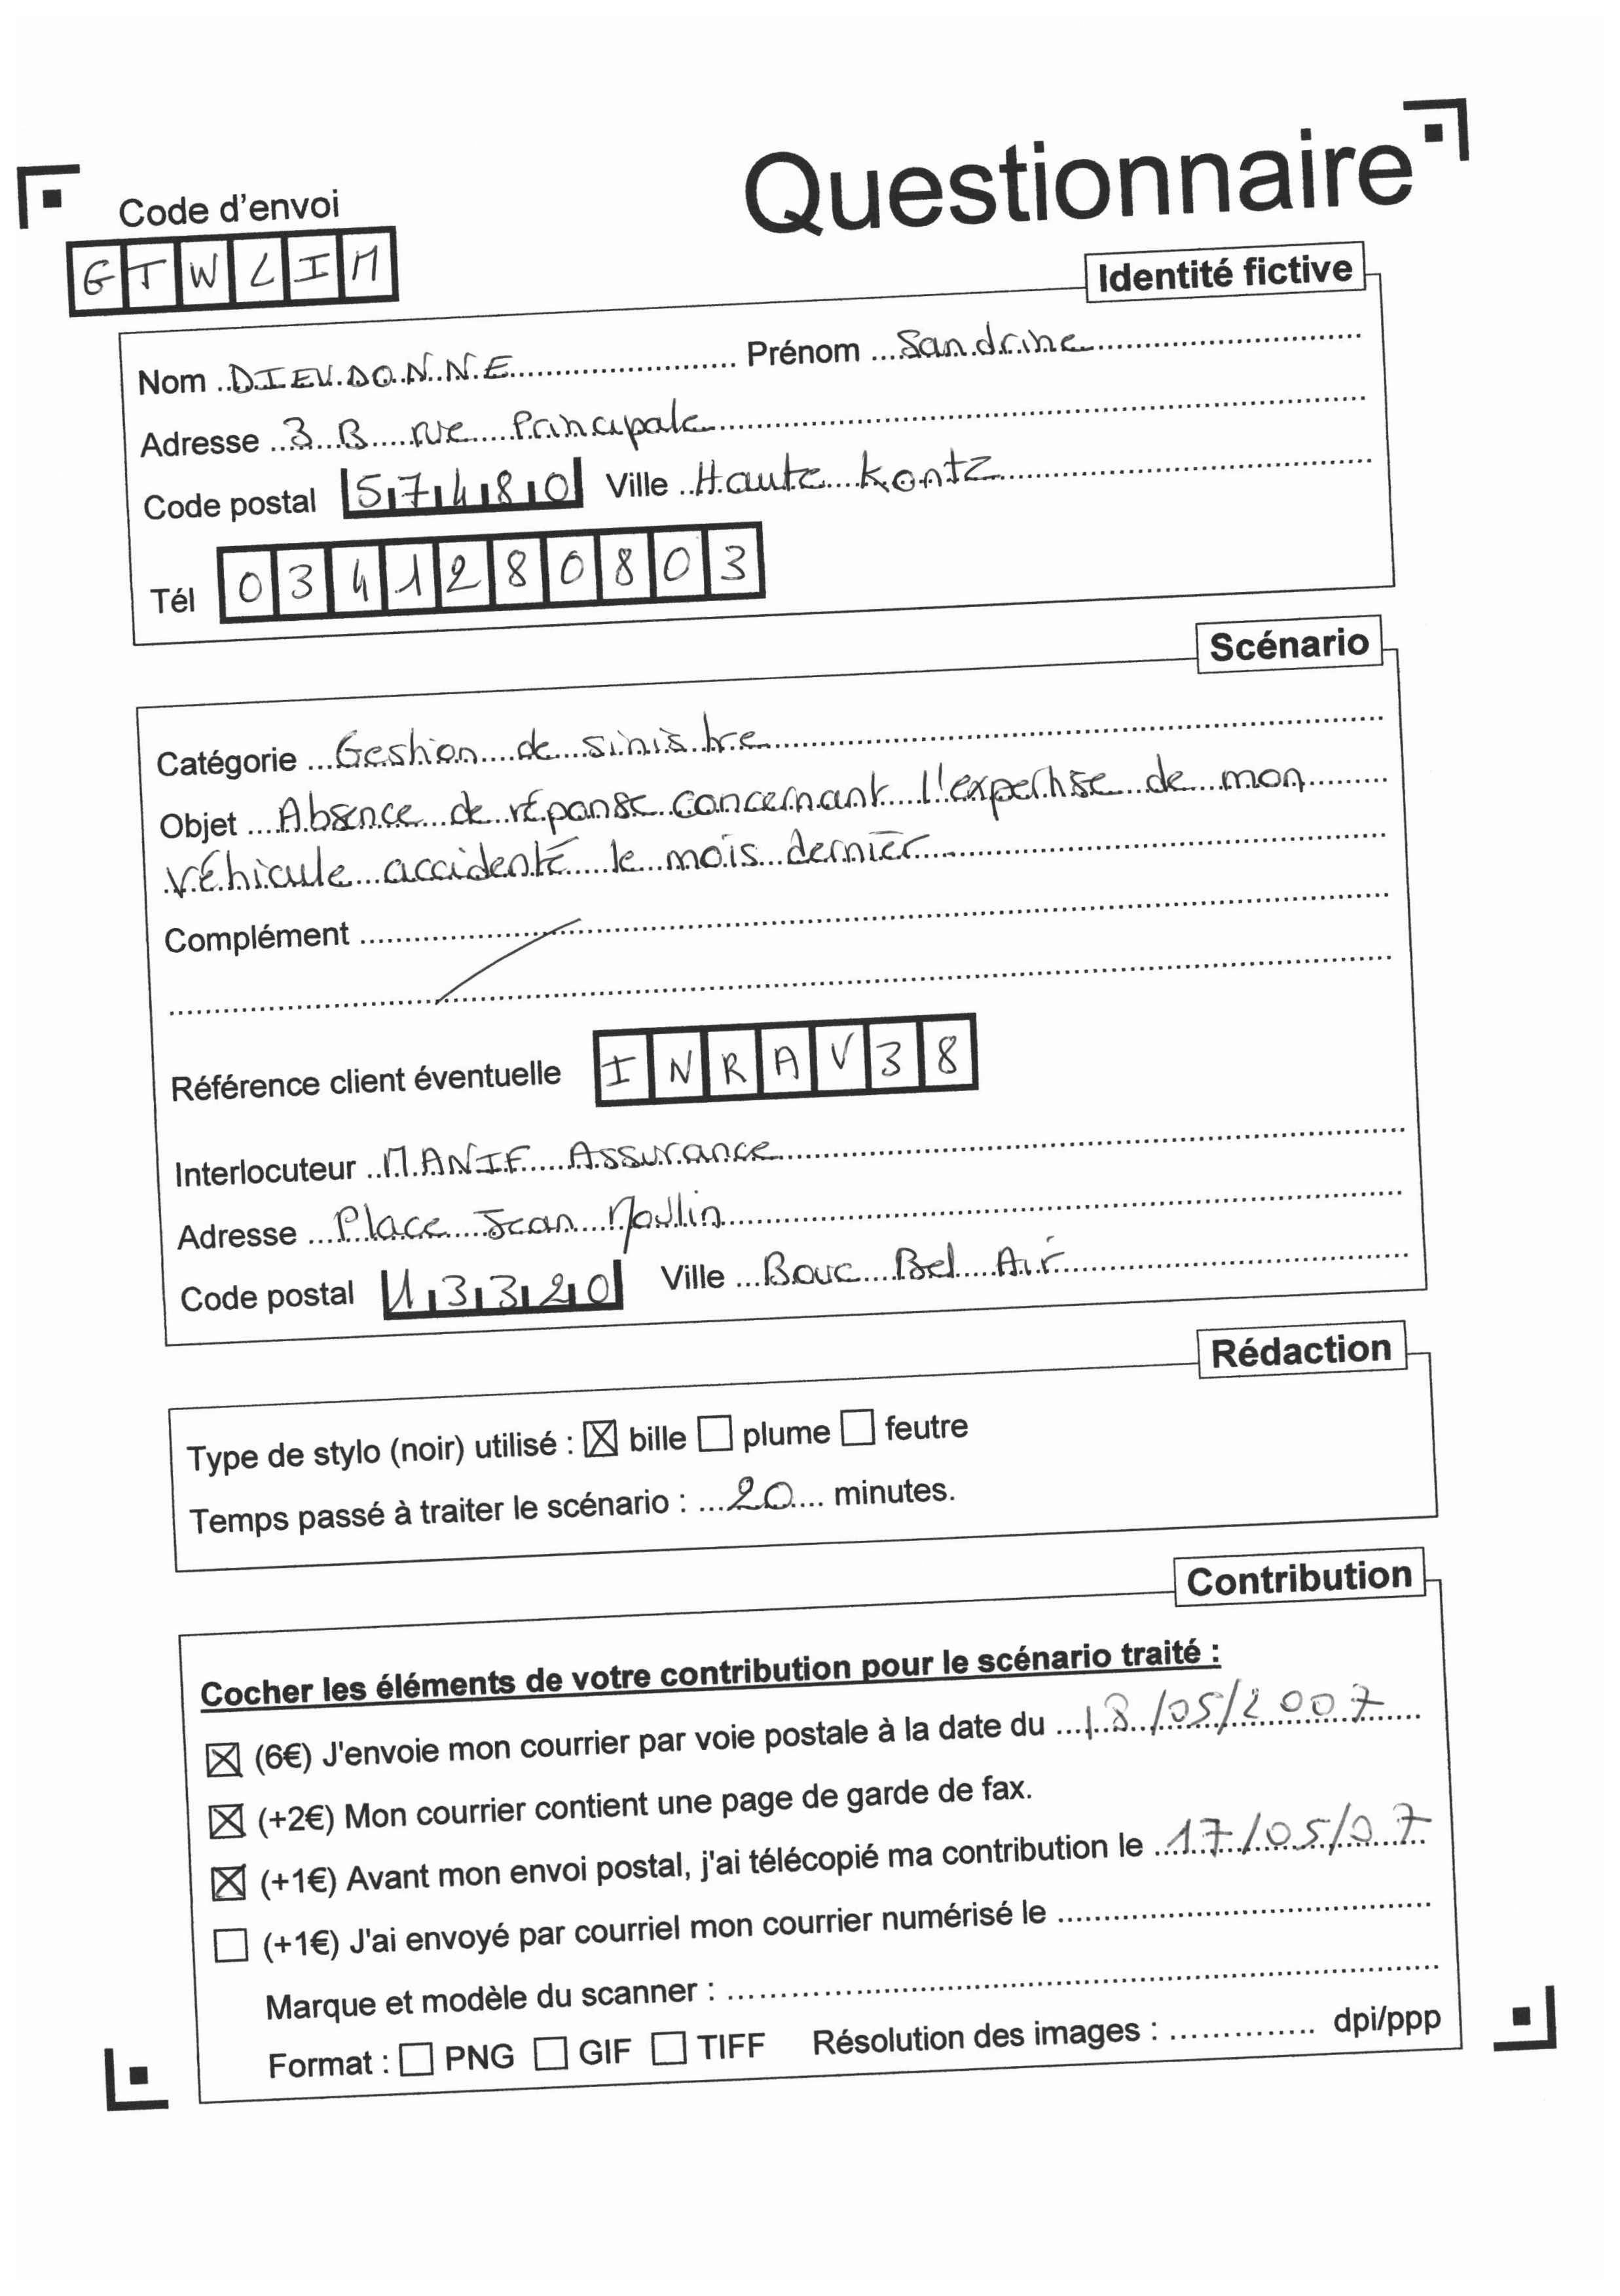 Questionnaire
Code d'envoi
GTWLIM
Identité fictive
Nom DIEUDONNE Prénom Sandrine
Adresse 3 B rue Principale
Code postal 57480 Ville Haute Kontz
Tél 0341280803
Scénario
Catégorie Gestion de sinistre
Objet Absence de réponse concernant l'expertise de mon
véhicule accidenté le mois dernier
Complément
Référence client éventuelle INRAV38
Interlocuteur MANIF Assurance
Adresse Place Jean Moulin
Code postal 13320 Ville Bouc Bel Air
Rédaction
Type de stylo (noir) utilisé : ☒ bille ☐ plume ☐ feutre
Temps passé à traiter le scénario : 20 minutes.
Contribution
Cocher les éléments de votre contribution pour le scénario traité :
☒ (6€) J'envoie mon courrier par voie postale à la date du 18/05/2007
☒ (+2€) Mon courrier contient une page de garde de fax.
☒ (+1€) Avant mon envoi postal, j'ai télécopié ma contribution le 17/05/07
☐ (+1€) J'ai envoyé par courriel mon courrier numérisé le
Marque et modèle du scanner :
Format : ☐ PNG ☐ GIF ☐ TIFF Résolution des images : dpi/ppp